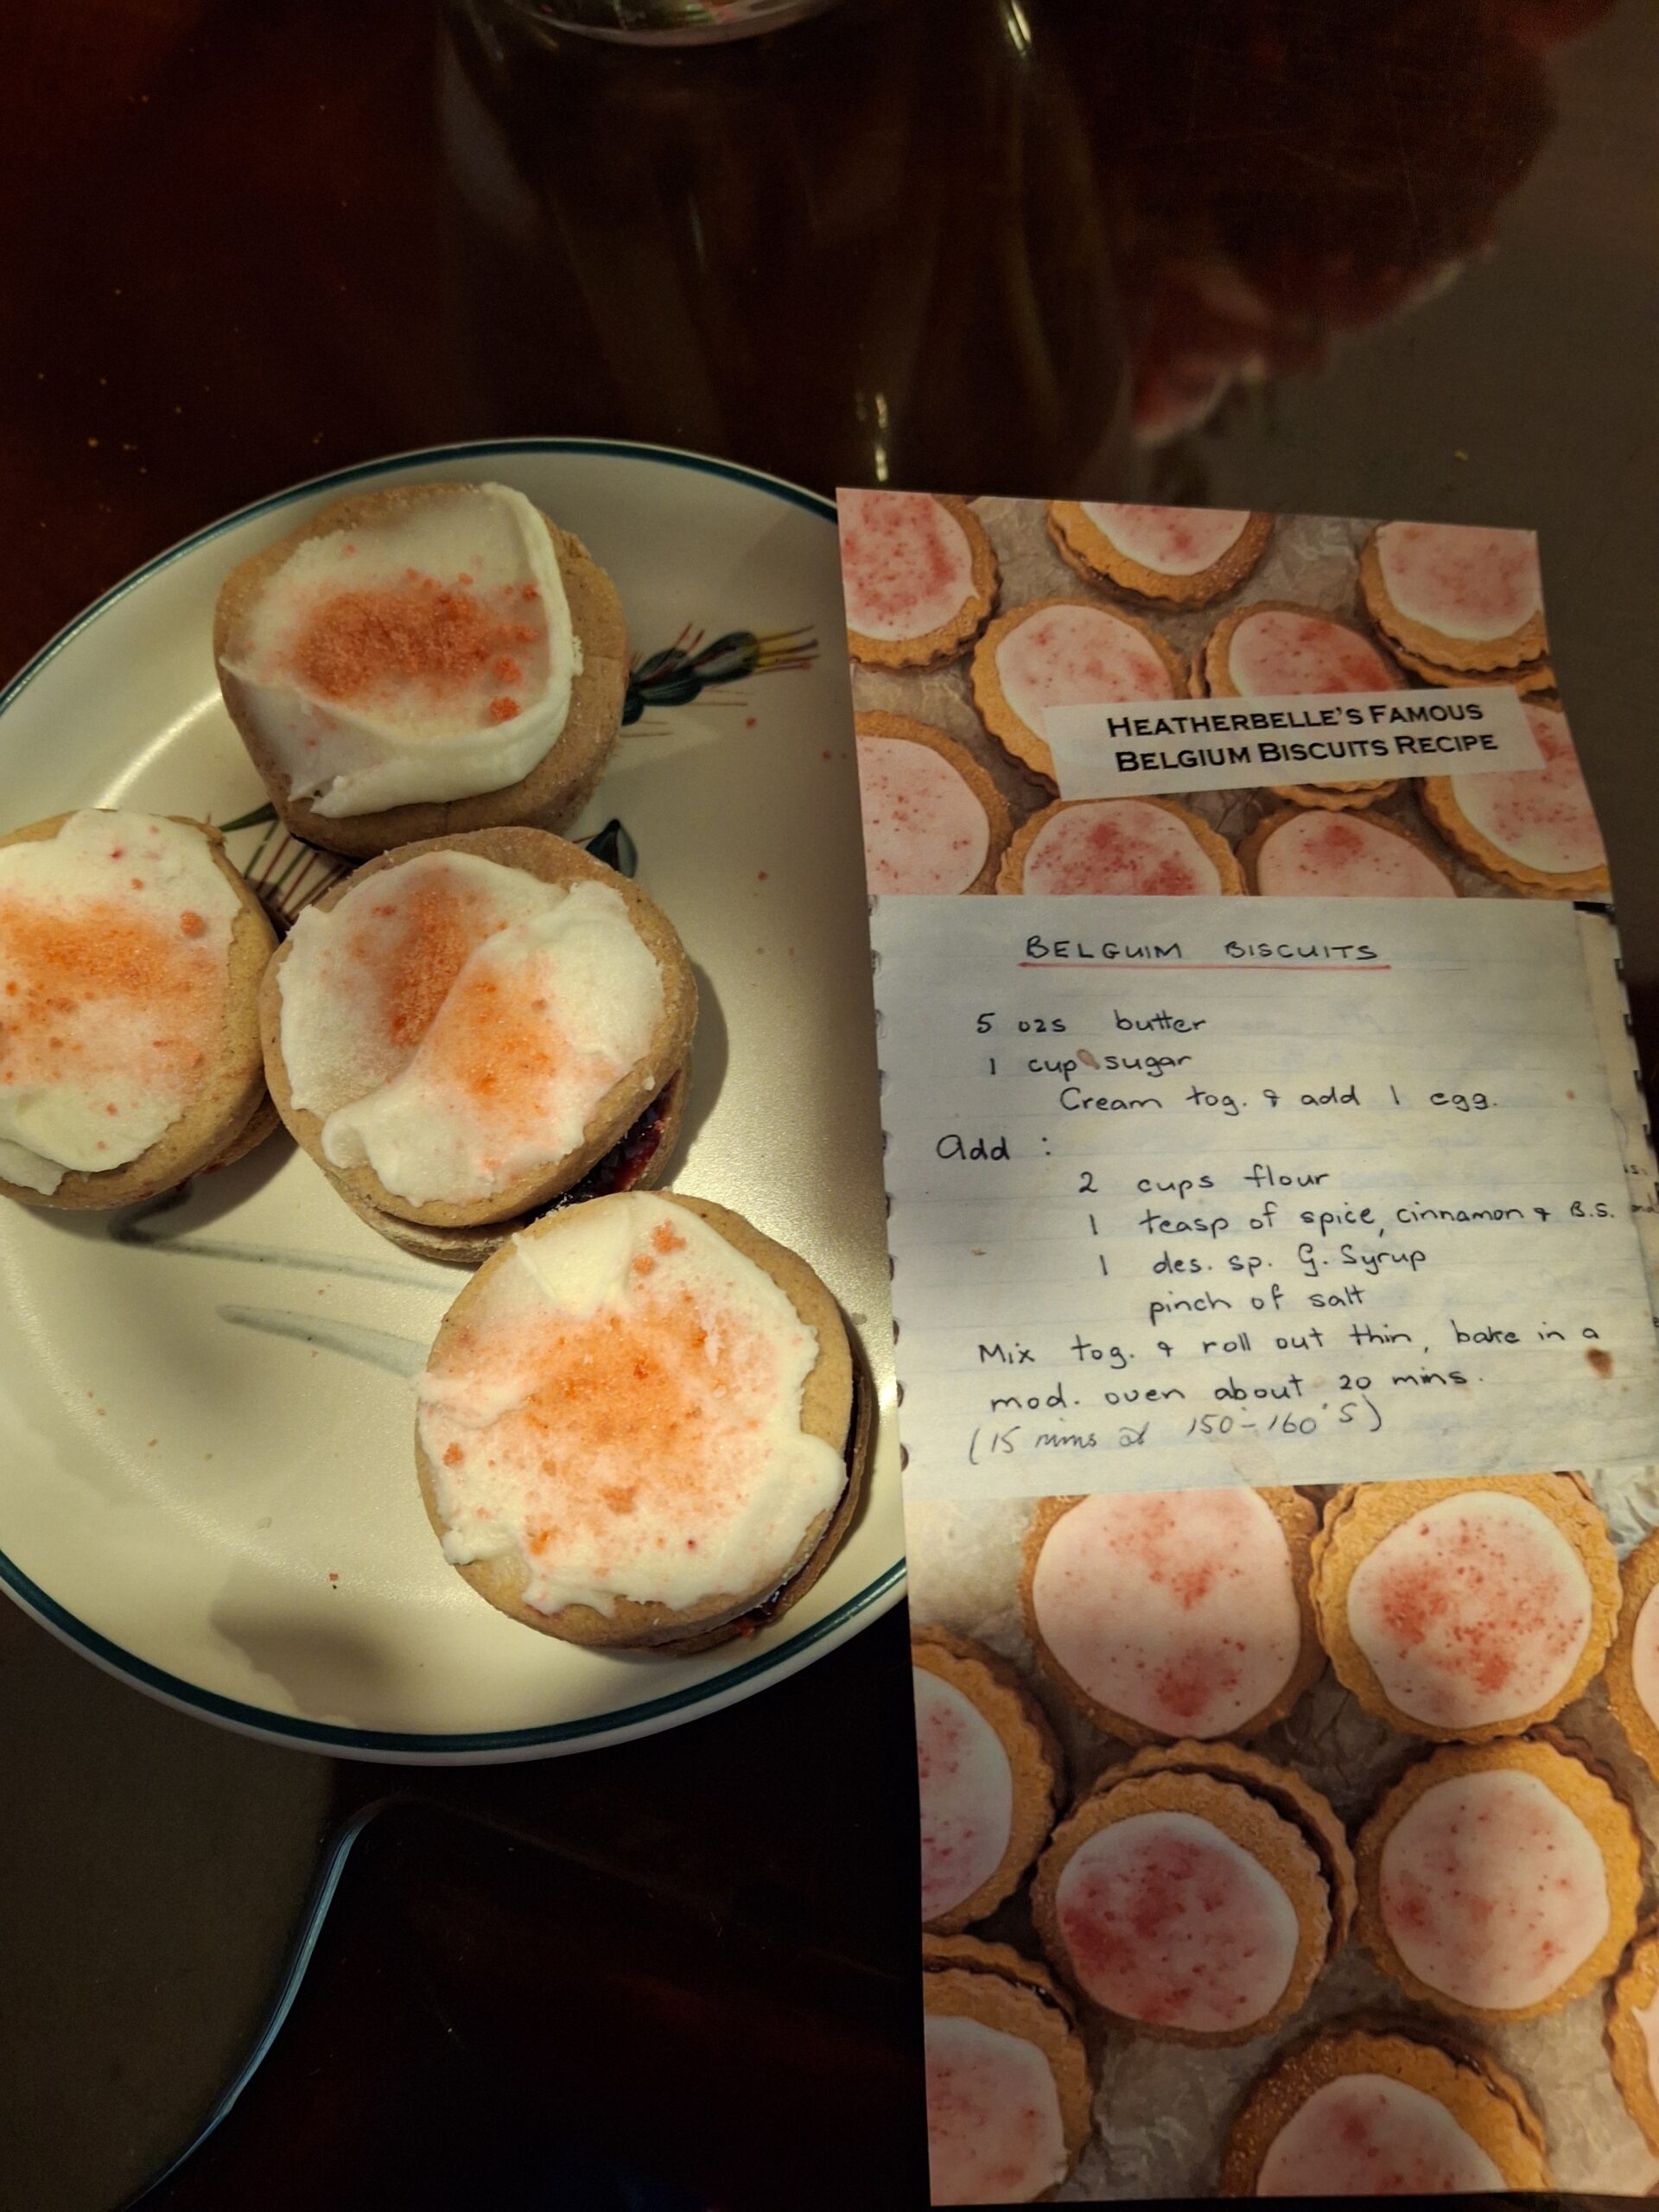 HEATHERBELLE'S FAMOUS
BELGIUM BISCUITS RECIPE
BELGUIM BISCUITS
5 ozs butter
1 cup sugar
Cream tog. & add 1 egg.
Add :
2 cups flour
1 teasp of spice, cinnamon & B.S.
1 des. sp. G. Syrup
pinch of salt
Mix tog. & roll out thin, bake in a
mod. oven about 20 mins.
(15 mins at 150-160's)